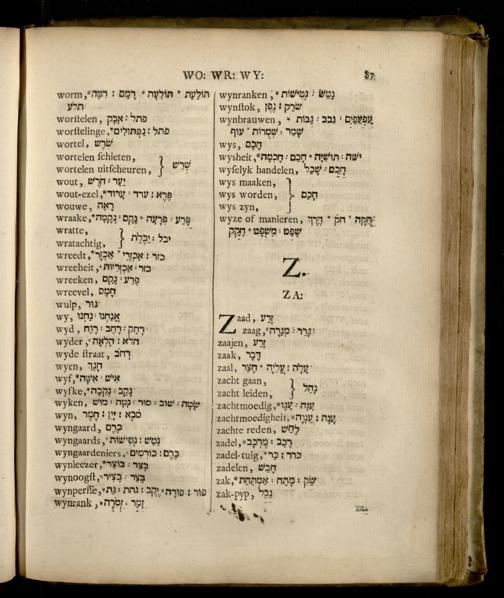 WO: WR: WY: 87
worm,* תולעת * תולעה : רמם : רמה
תלע
worstelen, פתל : אבק
worstelinge, פתל : נפתולים
wortel, שרש
wortelen schieten,
wortelen uitscheuren, } שרש
wout, יער : חרש
wout-ezel, פרא : ערד : ערוד
wouwe, ראה
wraake, פרע : פרעה * נקם : נקמה
wratte,
wratachtig, } יבל : יבלת
wreedt, כזר : אכזרי * אכזר
wreedheit, כזר : אכזריות
wreeken, פרע : נקם
wreevel, חמס
wulp, גור
wy, אנחנו : נחנו
wyd, רחק : רחב : רוח
wyder, הלא : הלאה
wyde straat, רחב
wyen, חנך
wyf, איש : אשה
wyfke, נקב : נקבה
wyken, שטה : שוב : סור : נטה : מוש
wyn, סבא : יין : חמר
wyngaard, כרם
wyngaards, נטש : נטישות
wyngaardeniers, כרם : כורמים
wynleezer, בצר : בוצר
wynoogst, בצר : בציר
wynpersse, פור : פורה * יקב : גתת : גת
wynrank, זמר : זמרה
wynranken, נטש : נטישות
wynstok, שרק : גפן
wynbrauwen, עפעפים : גבב : גבות
שמר : שמרות * עוף
wys, חכם
wysheit, ישה : תושיה * חכם : חכמה
wyselyk handelen, חכם : שכל
wys maaken,
wys worden, } חכם
wys zyn,
wyze of manieren, דרך
שפט : משפט * חקק
Z.
ZA:
Zaad, זרע
zaag, נרר : מגרה
zaajen, זרע
zaak, דבר
zaal, עלה : עליה * חצר
zacht gaan,
zacht leiden, } נהל
zachtmoedig, ענה : ענו
zachtmoedigheit, ענה : ענוה
zachte reden, לחש
zadel, רכב : מרכב
zadel-tuig, כרר : כר
zadelen, חבש
zak, שק : מתח : אמתחת
zak-pyp, נבל